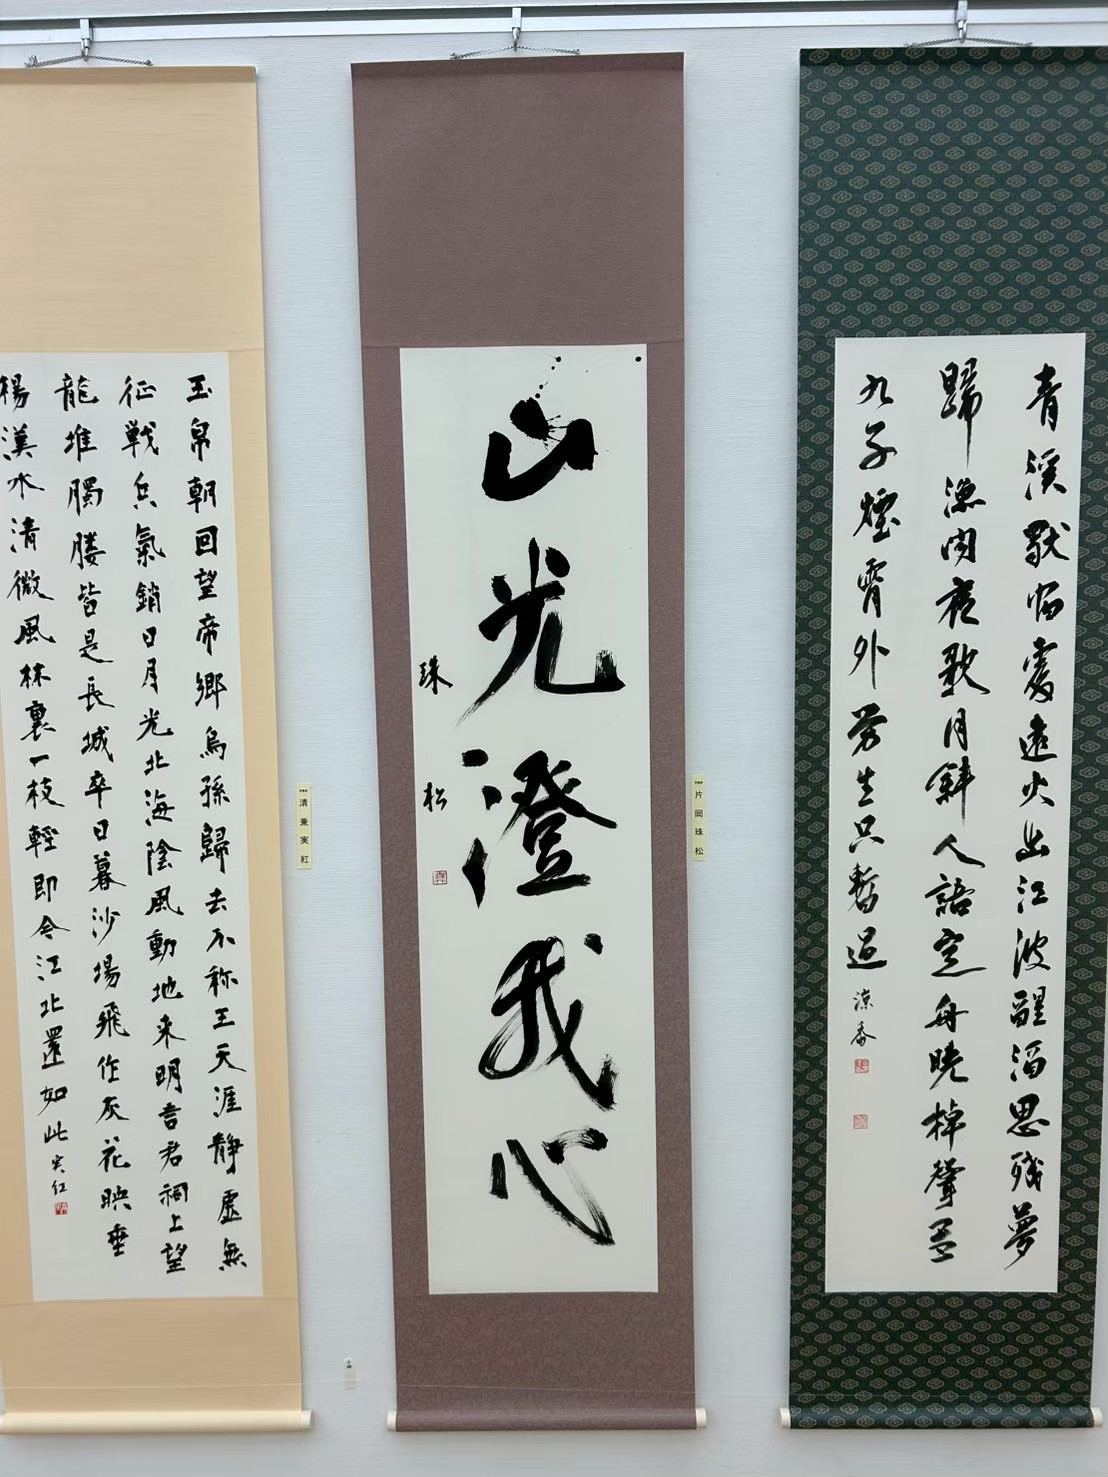 青渓歇 處遠火出江波醒酒思残夢
歸漁聞夜歌月斜人語定舟暁棹聲多
九子煙霄外労生只暫過
涼香
片岡珠松
山光澄我心
珠松
清兼実紅
玉帛朝回望帝郷烏孫歸去不称王天涯静處無
征戦兵氣銷日月光北海陰風動地来明言君祠上望
龍堆髑髏皆是長城卒日暮沙場飛作灰花映垂
楊漢水清微風林裏一枝輕即今江北還如此
実紅